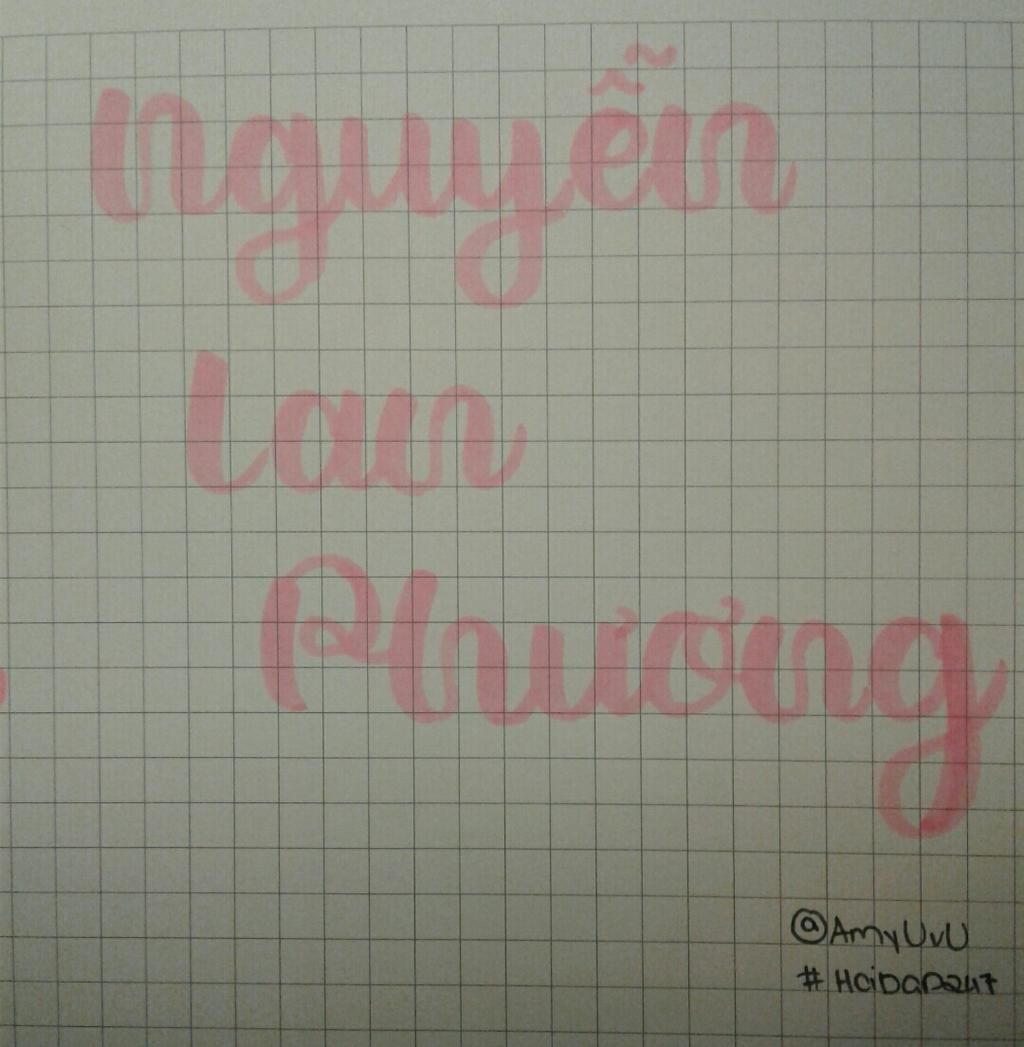 Nguyễn
Lan
Phương
@AmyUvU
#HoiDap247